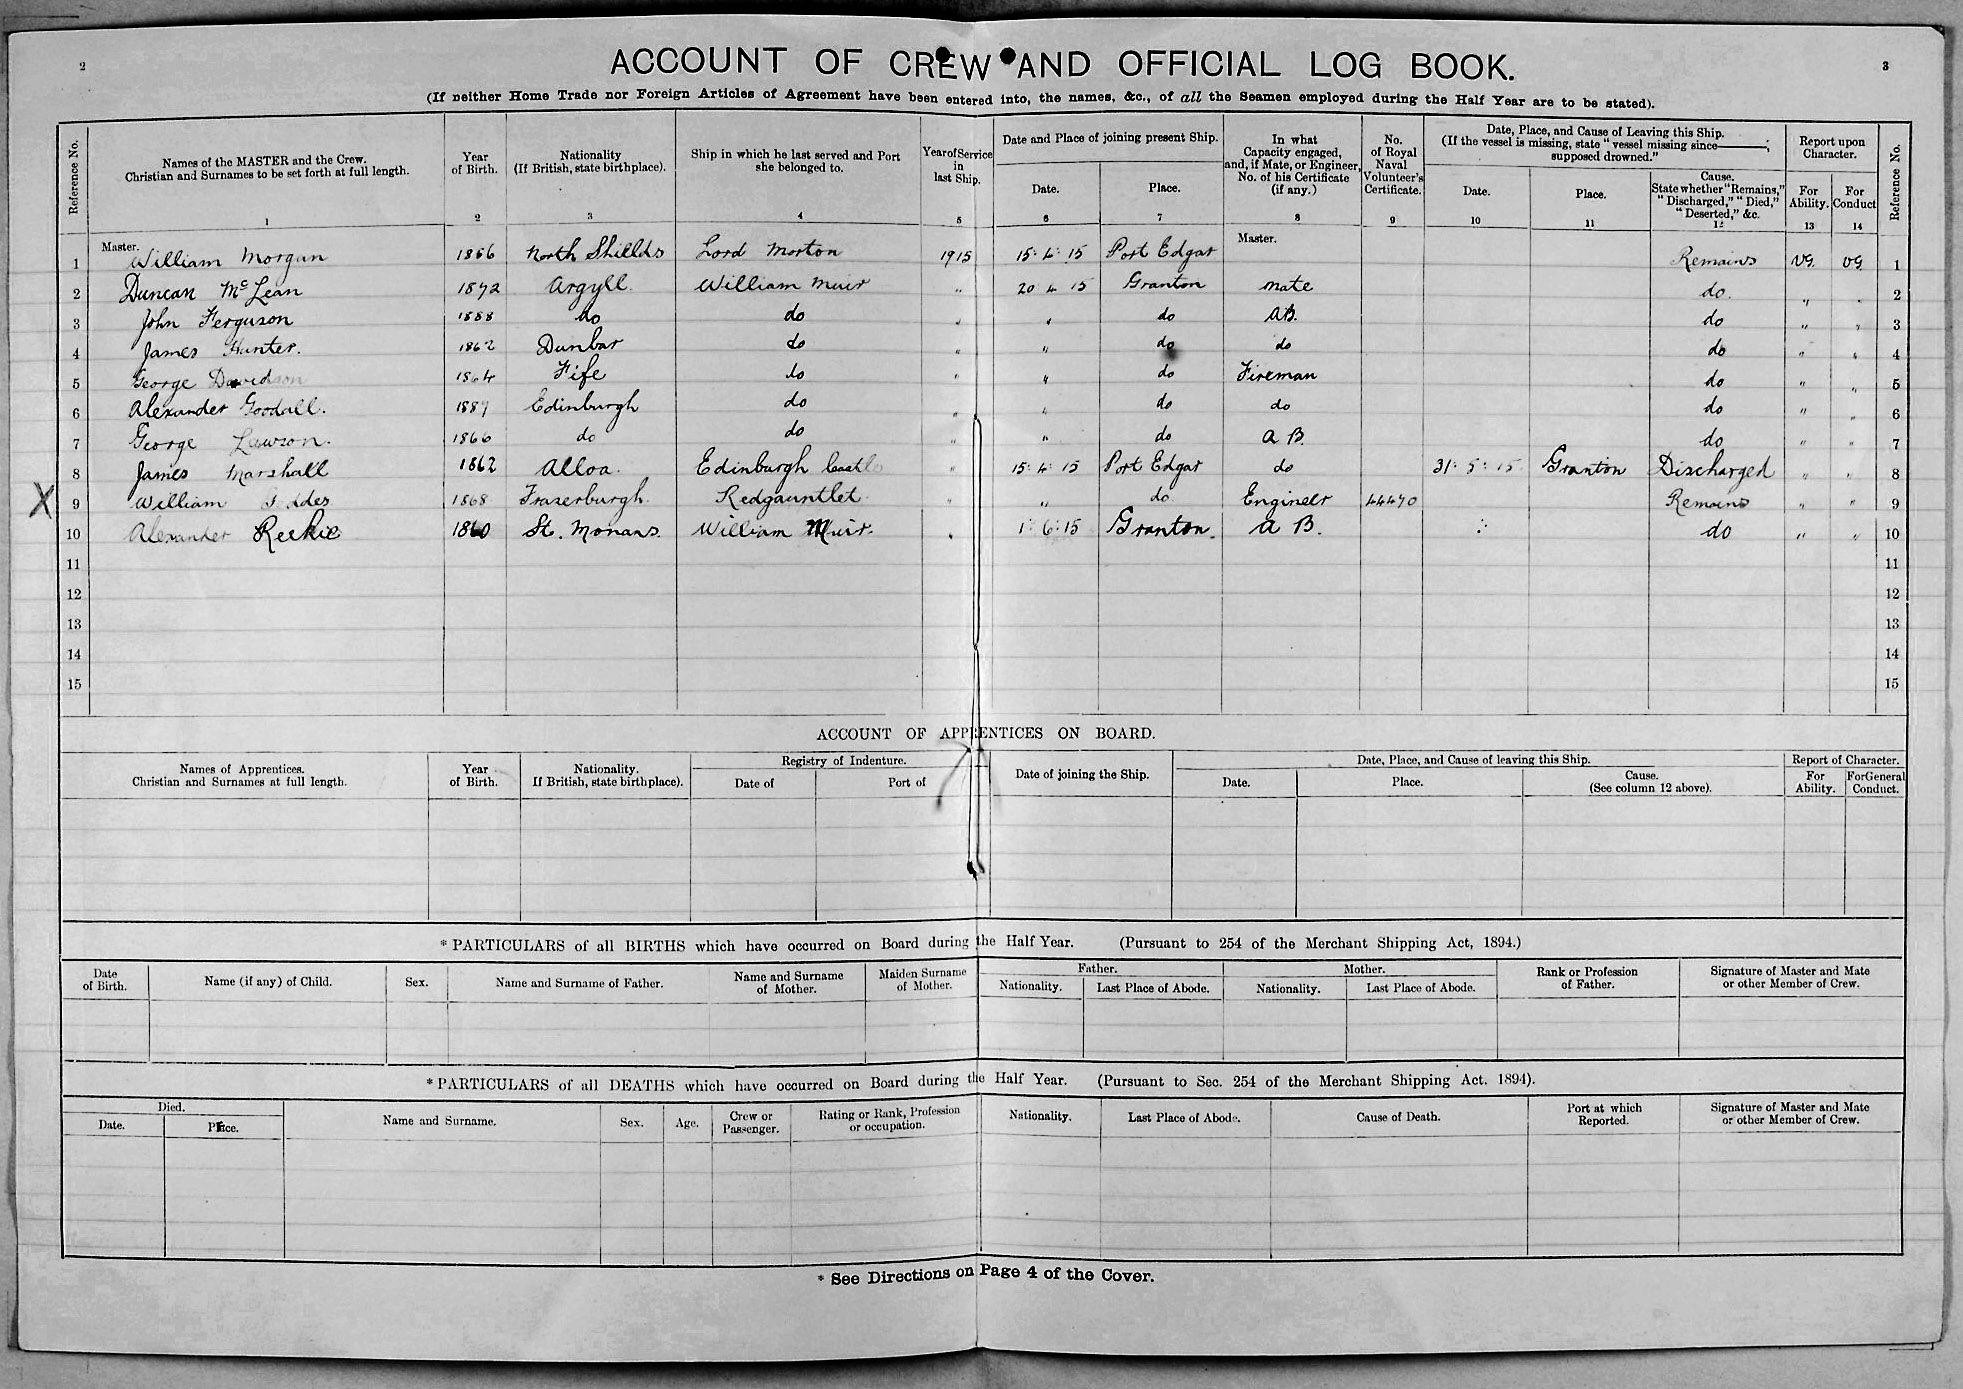 2
ACCOUNT OF CREW AND OFFICIAL LOG BOOK.
3
(If neither Home Trade nor Foreign Articles of Agreement have been entered into, the names, &c., of all the Seamen employed during the Half Year are to be stated).
Reference No.
Names of the MASTER and the Crew.
Christian and Surnames to be set forth at full length.
1
Year
of Birth.
2
Nationality
(If British, state birthplace).
3
Ship in which he last served and Port
she belonged to.
4
Year of Service
in
last Ship.
5
Date and Place of joining present Ship.
Date.
6
Place.
7
In what
Capacity engaged,
and, if Mate, or Engineer,
No. of his Certificate
(if any.)
8
No.
of Royal
Naval
Volunteer's
Certificate.
9
Date, Place, and Cause of Leaving this Ship.
(If the vessel is missing, state "vessel missing since——;
supposed drowned."
Date.
10
Place.
11
Cause.
State whether "Remains,"
"Discharged," "Died,"
"Deserted," &c.
12
Report upon
Character.
For
Ability.
13
For
Conduct
14
Reference No.
1 Master. William Morgan 1866 North Shields Lord Morton 1915 15 4 15 Port Edgar Master. Remains VG. VG 1
2 Duncan McLean 1892 Argyll. William Muir " 20 4 15 Granton Mate do. " " 2
3 John Ferguson 1888 do do " " do AB. do " " 3
4 James Hunter. 1862 Dunbar do " " do do do " " 4
5 George Davidson 1864 Fife do " " do Fireman do " " 5
6 Alexander Goodall. 1889 Edinburgh do " " do do do " " 6
7 George Lawson. 1866 do do " " do A B. do " " 7
8 James Marshall 1862 Alloa. Edinburgh Castle " 15 4 15 Port Edgar do 31 5 15 Granton Discharged " " 8
X 9 William 1868 Fraserburgh. Redgauntlet " " do Engineer 44470 Remains " " 9
10 Alexander Reekie 1860 St. Monans. William Muir. " 1 6 15 Granton. A B. do " " 10
11 11
12 12
13 13
14 14
15 15
ACCOUNT OF APPRENTICES ON BOARD.
Names of Apprentices.
Christian and Surnames at full length.
Year
of Birth.
Nationality.
If British, state birthplace).
Registry of Indenture.
Date of
Port of
Date of joining the Ship.
Date, Place, and Cause of leaving this Ship.
Date.
Place.
Cause.
(See column 12 above).
Report of Character.
For
Ability.
For General
Conduct.
* PARTICULARS of all BIRTHS which have occurred on Board during the Half Year. (Pursuant to 254 of the Merchant Shipping Act, 1894.)
Date
of Birth.
Name (if any) of Child.
Sex.
Name and Surname of Father.
Name and Surname
of Mother.
Maiden Surname
of Mother.
Father.
Nationality.
Last Place of Abode.
Mother.
Nationality.
Last Place of Abode.
Rank or Profession
of Father.
Signature of Master and Mate
or other Member of Crew.
* PARTICULARS of all DEATHS which have occurred on Board during the Half Year. (Pursuant to Sec. 254 of the Merchant Shipping Act. 1894).
Died.
Date.
Place.
Name and Surname.
Sex.
Age.
Crew or
Passenger.
Rating or Rank, Profession
or occupation.
Nationality.
Last Place of Abode.
Cause of Death.
Port at which
Reported.
Signature of Master and Mate
or other Member of Crew.
* See Directions on Page 4 of the Cover.